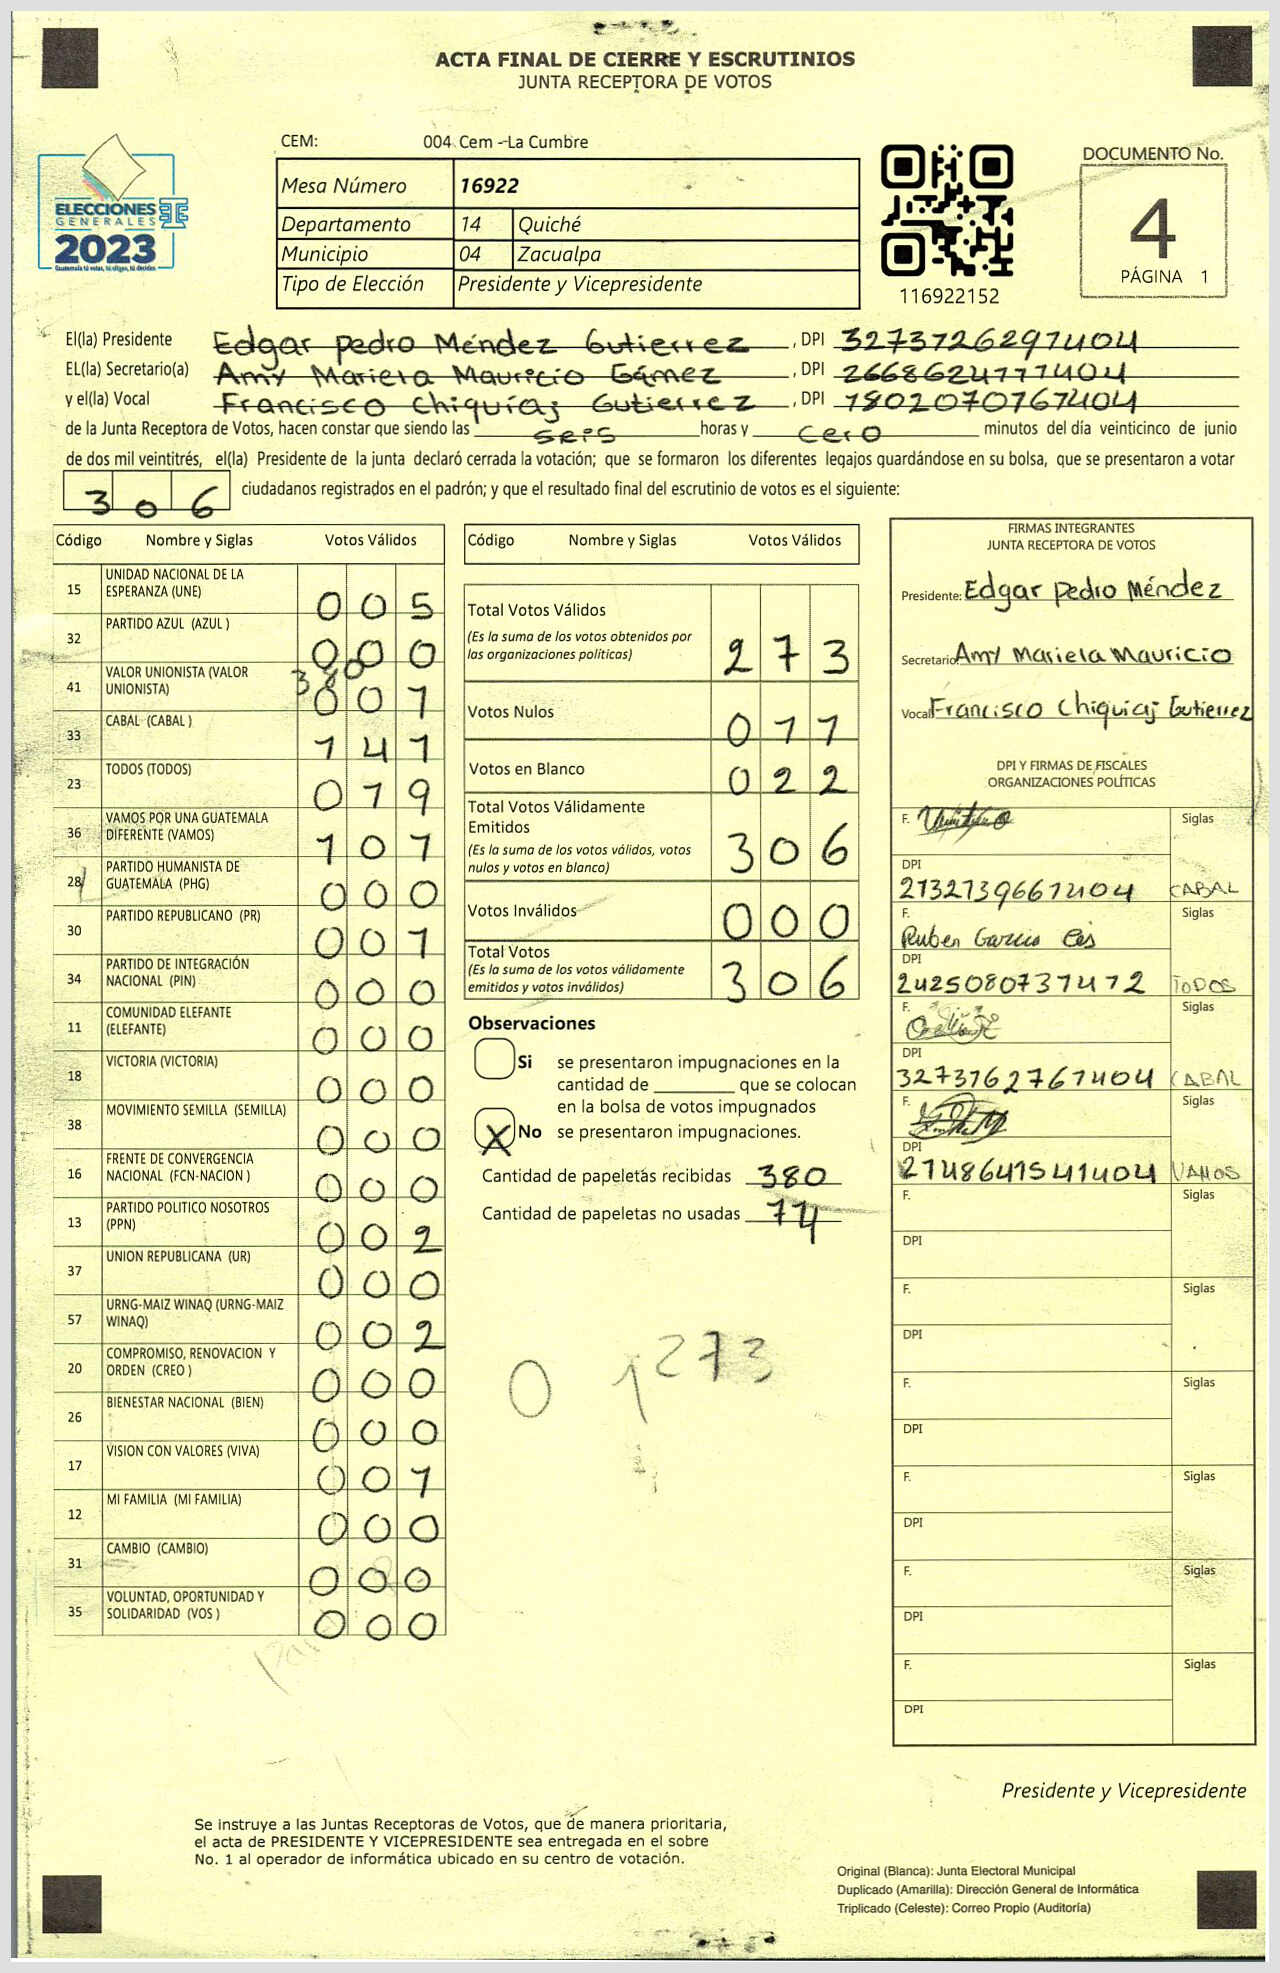 ACTA FINAL DE CIERRE Y ESCRUTINIOS
JUNTA RECEPTORA DE VOTOS
CEM: 004 Cem - La Cumbre
Mesa Número 16922
Departamento 14 Quiché
Municipio 04 Zacualpa
Tipo de Elección Presidente y Vicepresidente
ELECCIONES
GENERALES
2023
Guatemala tú votas, tú eliges, tú decides
116922152
DOCUMENTO No.
4
PÁGINA 1
El(la) Presidente Edgar Pedro Méndez Gutierrez, DPI 3273726297404
EL(la) Secretario(a) Amy Mariela Mauricio Gámez, DPI 2668624777404
y el(la) Vocal Francisco Chiquiaj Gutierrez, DPI 1802070767404
de la Junta Receptora de Votos, hacen constar que siendo las seis horas y cero minutos del día veinticinco de junio
de dos mil veintitrés, el(la) Presidente de la junta declaró cerrada la votación; que se formaron los diferentes legajos guardándose en su bolsa, que se presentaron a votar
306 ciudadanos registrados en el padrón; y que el resultado final del escrutinio de votos es el siguiente:
Código Nombre y Siglas Votos Válidos
15 UNIDAD NACIONAL DE LA
ESPERANZA (UNE) 005
32 PARTIDO AZUL (AZUL ) 000
380
41 VALOR UNIONISTA (VALOR
UNIONISTA) 001
33 CABAL (CABAL ) 141
23 TODOS (TODOS) 019
36 VAMOS POR UNA GUATEMALA
DIFERENTE (VAMOS) 101
28 PARTIDO HUMANISTA DE
GUATEMALA (PHG) 000
30 PARTIDO REPUBLICANO (PR) 001
34 PARTIDO DE INTEGRACIÓN
NACIONAL (PIN) 000
11 COMUNIDAD ELEFANTE
(ELEFANTE) 000
18 VICTORIA (VICTORIA) 000
38 MOVIMIENTO SEMILLA (SEMILLA) 000
16 FRENTE DE CONVERGENCIA
NACIONAL (FCN-NACION ) 000
13 PARTIDO POLITICO NOSOTROS
(PPN) 002
37 UNION REPUBLICANA (UR) 000
57 URNG-MAIZ WINAQ (URNG-MAIZ
WINAQ) 002
20 COMPROMISO, RENOVACION Y
ORDEN (CREO ) 000
26 BIENESTAR NACIONAL (BIEN) 000
17 VISION CON VALORES (VIVA) 001
12 MI FAMILIA (MI FAMILIA) 000
31 CAMBIO (CAMBIO) 000
35 VOLUNTAD, OPORTUNIDAD Y
SOLIDARIDAD (VOS ) 000
Código Nombre y Siglas Votos Válidos
Total Votos Válidos
(Es la suma de los votos obtenidos por
las organizaciones políticas) 273
Votos Nulos 011
Votos en Blanco 022
Total Votos Válidamente
Emitidos
(Es la suma de los votos válidos, votos
nulos y votos en blanco) 306
Votos Inválidos 000
Total Votos
(Es la suma de los votos válidamente
emitidos y votos inválidos) 306
Observaciones
Si se presentaron impugnaciones en la
cantidad de ________ que se colocan
en la bolsa de votos impugnados
X No se presentaron impugnaciones.
Cantidad de papeletas recibidas 380
Cantidad de papeletas no usadas 74
0 1 273
FIRMAS INTEGRANTES
JUNTA RECEPTORA DE VOTOS
Presidente: Edgar Pedro Méndez
Secretario Amy Mariela Mauricio
Vocal Francisco Chiquiaj Gutierrez
DPI Y FIRMAS DE FISCALES
ORGANIZACIONES POLÍTICAS
F. Siglas
DPI
2132139661404 CABAL
F. Siglas
Ruben Garcia
DPI
2425080731412 TODOS
F. Siglas
DPI
3273762767404 CABAL
F. Siglas
DPI
2148641541404 VAMOS
F. Siglas
DPI
F. Siglas
DPI
F. Siglas
DPI
F. Siglas
DPI
F. Siglas
DPI
F. Siglas
DPI
Presidente y Vicepresidente
Se instruye a las Juntas Receptoras de Votos, que de manera prioritaria,
el acta de PRESIDENTE Y VICEPRESIDENTE sea entregada en el sobre
No. 1 al operador de informática ubicado en su centro de votación.
Original (Blanca): Junta Electoral Municipal
Duplicado (Amarilla): Dirección General de Informática
Triplicado (Celeste): Correo Propio (Auditoría)